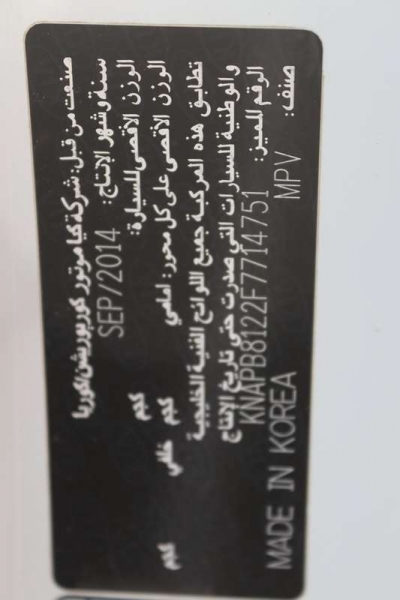 صنعت من قبل: شركة كيا موتور كوربوريشن/كوريا
سنة وشهر الإنتاج: SEP/2014
الوزن الأقصى للسيارة: كجم
الوزن الأقصى على كل محور: أمامي كجم خلفي كجم
تطابق هذه المركبة جميع اللوائح الفنية الخليجية
والوطنية للسيارات التي صدرت حتى تاريخ الإنتاج
الرقم المميز: KNAPB8122F7714751
صنف: MPV MADE IN KOREA